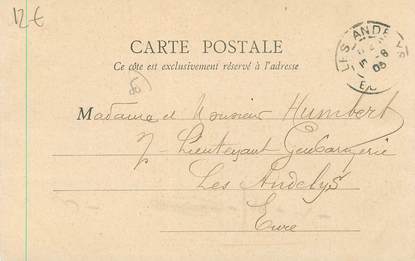 12€
CARTE POSTALE
Ce côté est exclusivement réservé à l'adresse
LES ANDELYS
5 -8
03
EU
Madame et Monsieur Humbert
Lieutenant Gendarmerie
Les Andelys
Eure